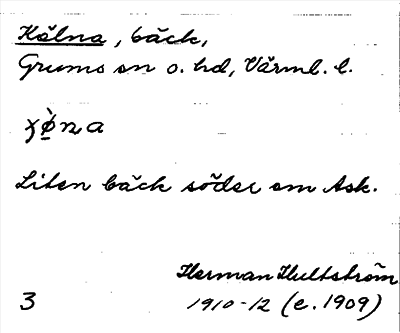 Kölna, bäck,
Grums sn o. hd, Värml. l.
Liten bäck söder om Ask.
Herman Hultström
3 1910-12 (e. 1909)